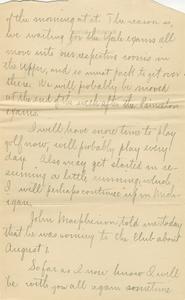 of the morning at it. The reason is,
we waiting for the Yale exams all
move into our respective rooms in
the Upper, and so must pack to get over
there. We will probably be moved
at the end of the week after the
exams.
I will have more time to play
golf now, will probably play every
day. Also may get started in re-
suming a little running, which
I will perhaps continue up in Mich-
igan.
John Macpherson told me today
that he was coming to the club about
August 1.
So far as I now know I will
be with you all again sometime